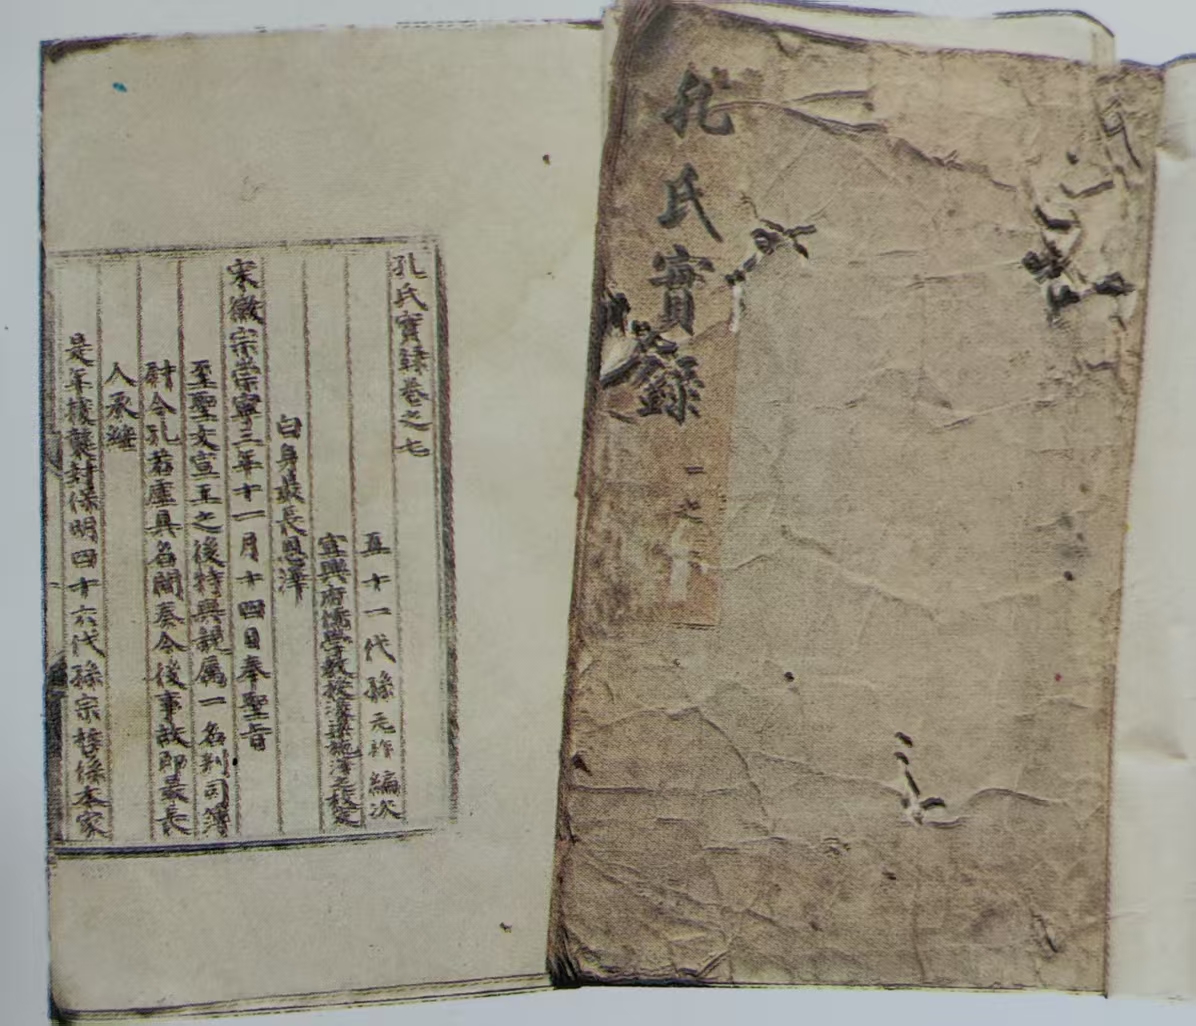 孔氏實錄
一之
孔氏實録卷之七
五十一代孫元祚編次
宜興府儒學教授濠梁施澤之校定
白身最長恩澤
宋徽宗崇寧三年十一月十四日奉聖旨
至聖文宣王之後特與親属一名判司簿
尉令孔若虛具名聞奏今後事故即最長
人承繼
是年據襲封保明四十六代孫宗哲係本家